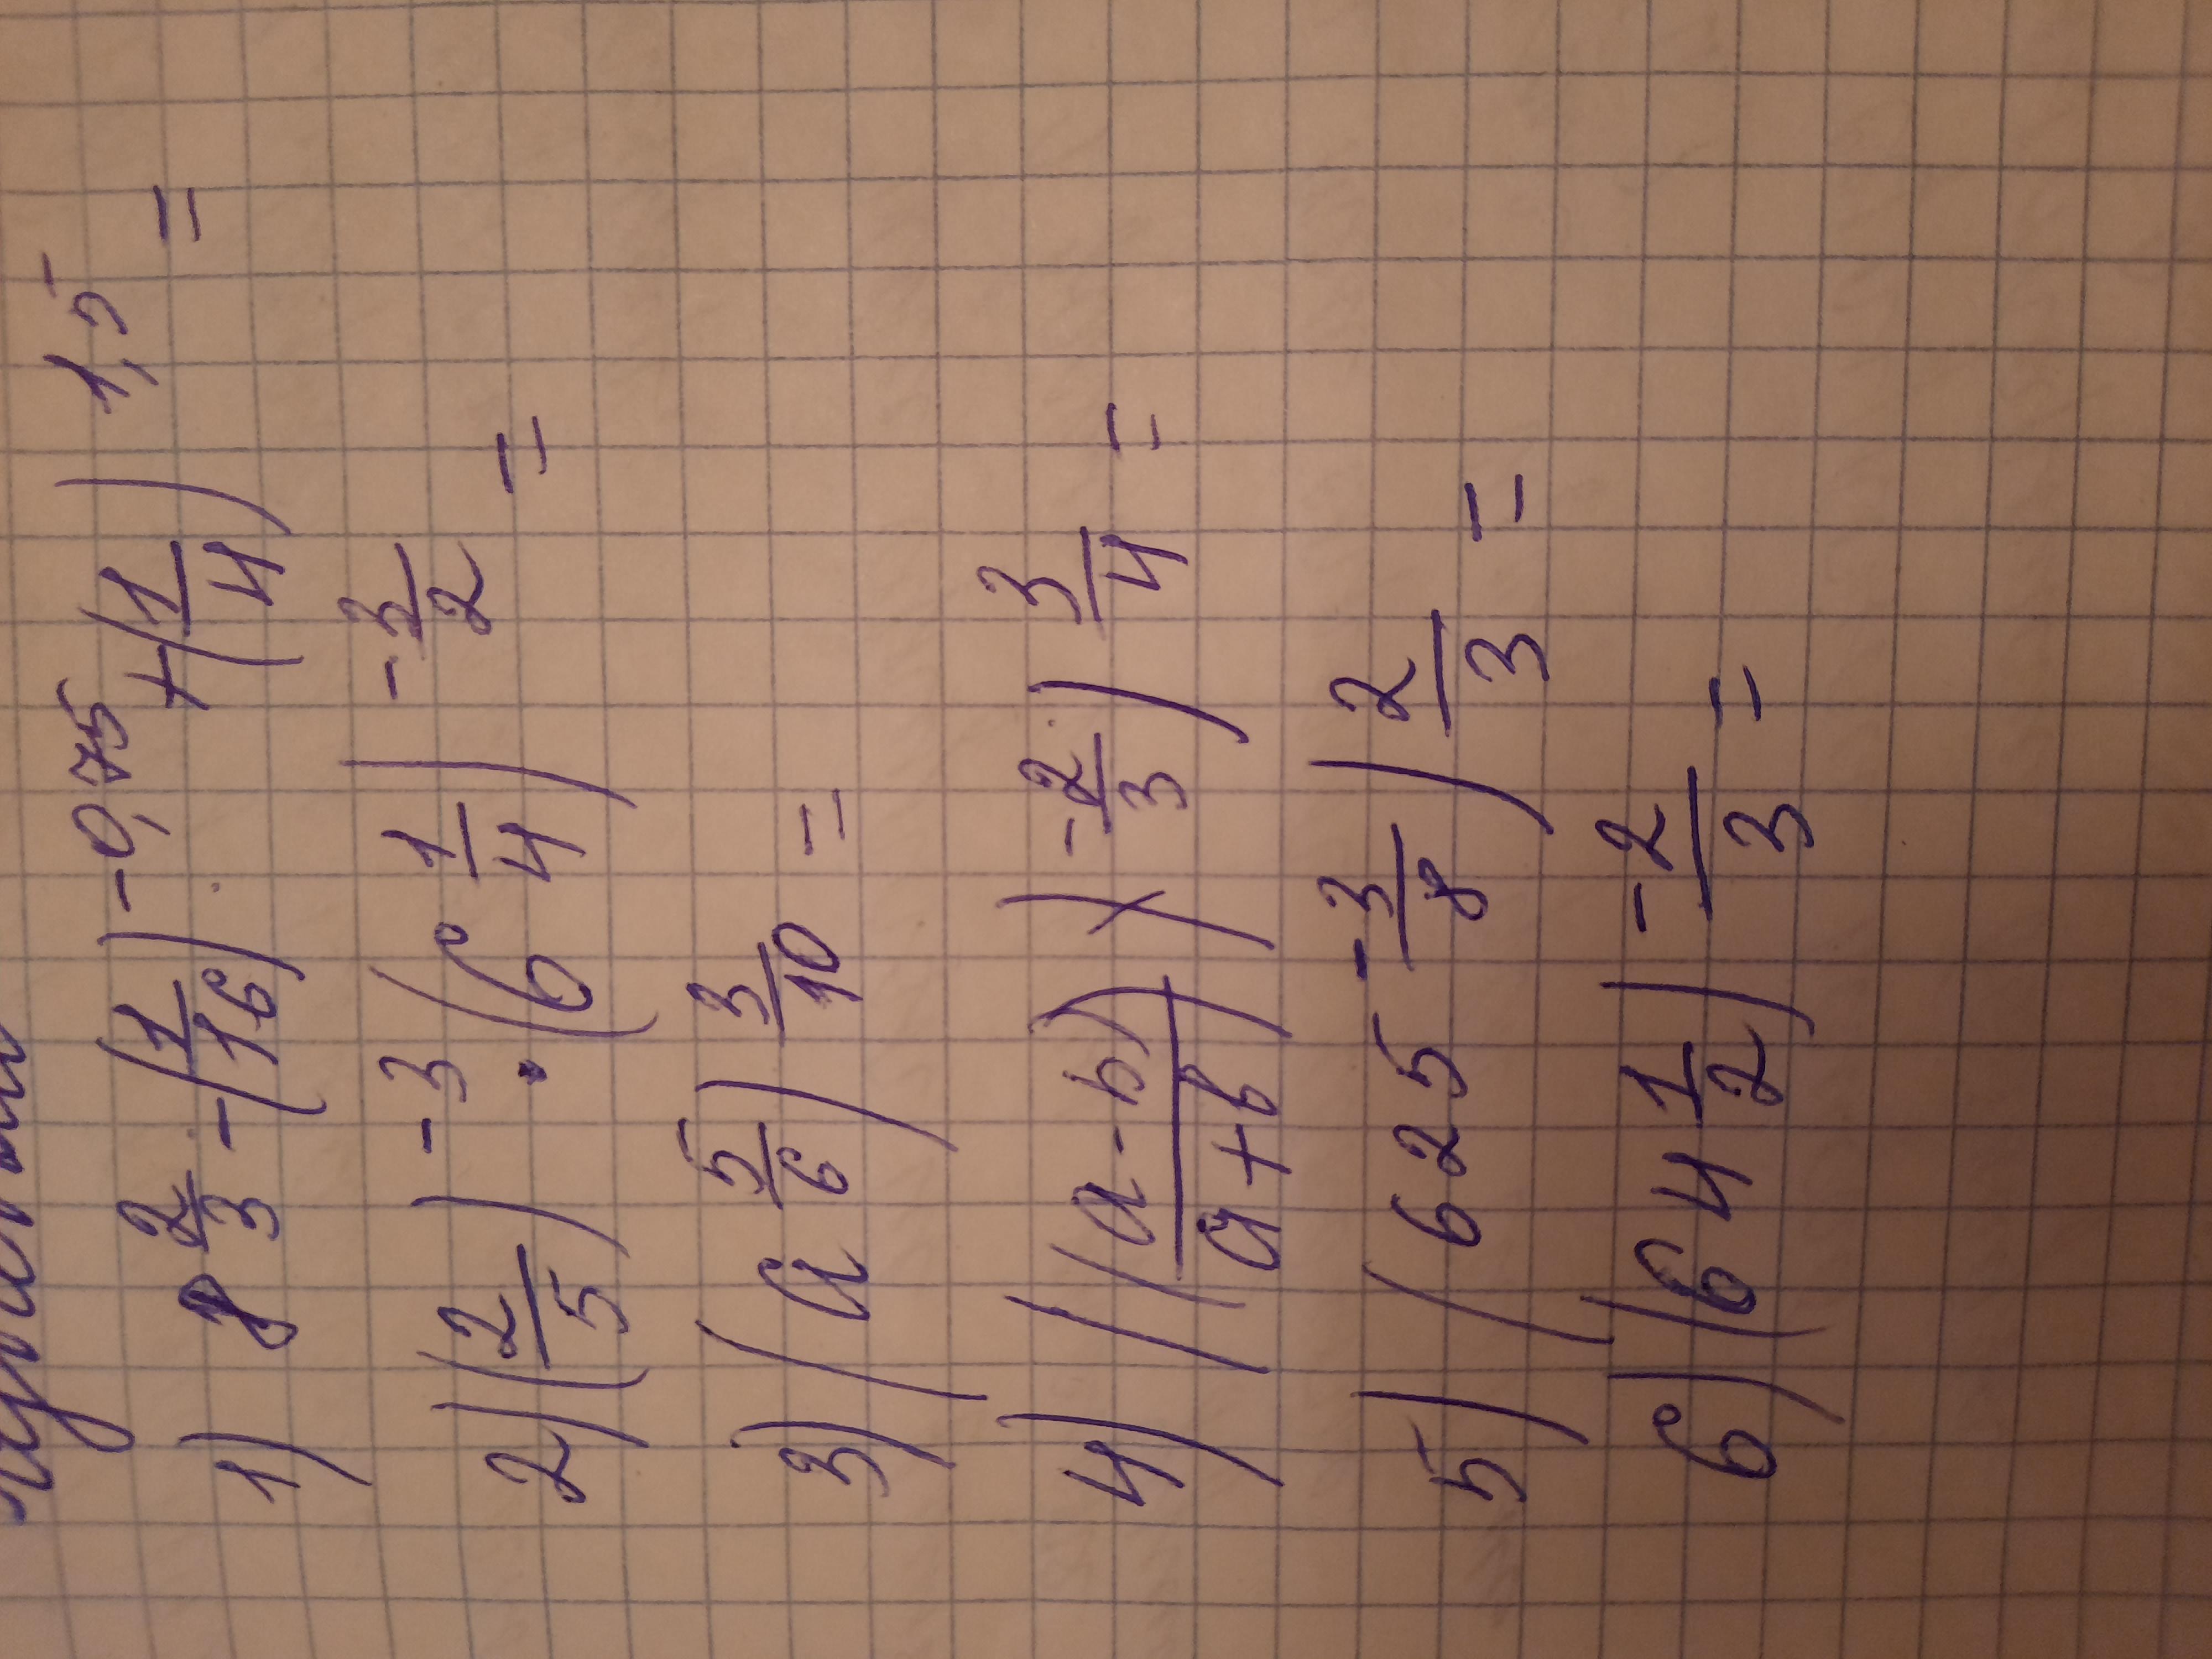 1) 8^(2/3) - (1/16)^(-0,75) + (1/4)^(1,5) =
2) (2/5)^(-3) · (6 1/4)^(-3/2) =
3) (a^(5/6))^(3/10) =
4) (((a-b)/(a+b))^(-2/3))^(3/4) =
5) (625^(-3/8))^(2/3) =
6) (64^(1/2))^(-2/3) =